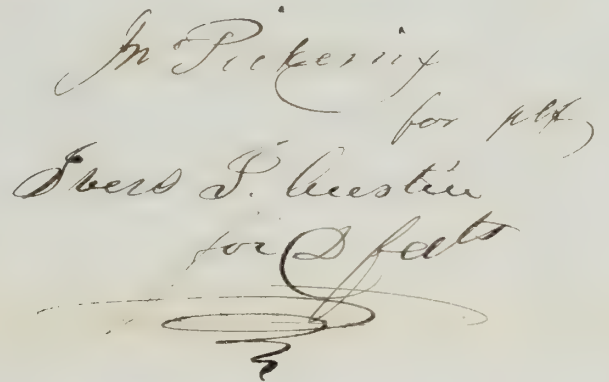 Jn Pickering
for plf,
Ivers J. Austin
for Dfeats